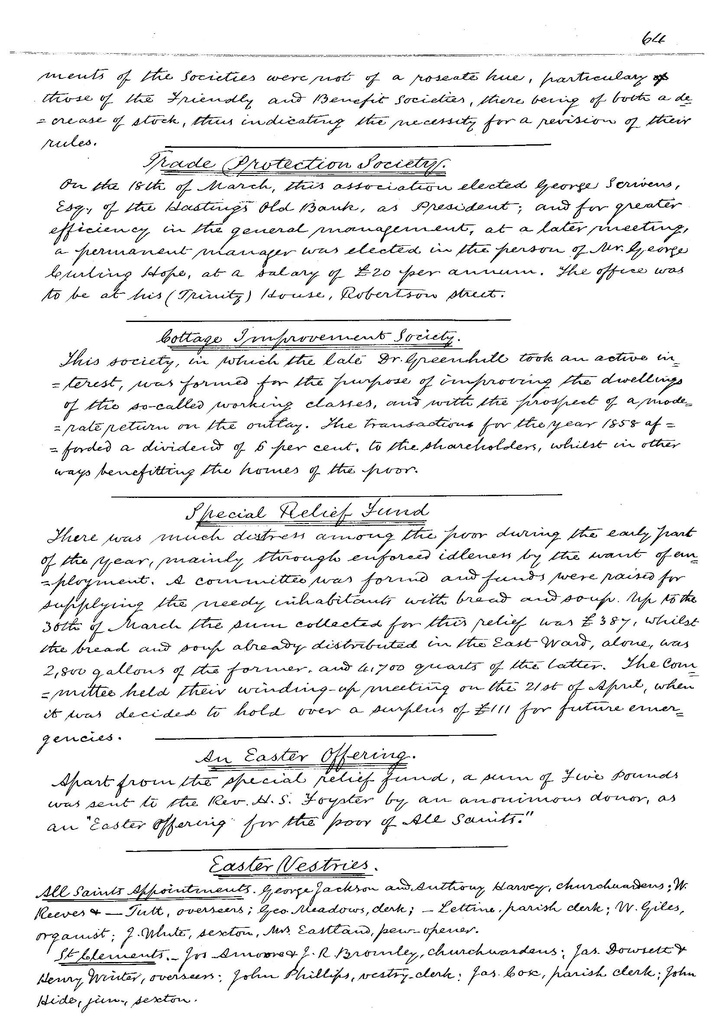 64
ments of the Societies were not of a roseate hue, particulary of
those of the Friendly and Benefit Societies, there being of both a de=
=crease of stock, thus indicating the necessity for a revision of their
rules.
Trade Protection Society.
On the 18th of March, this association elected George Scrivens,
Esq, of the Hastings Old Bank, as President; and for greater
efficiency in the general management, at a later meeting,
a permanent manager was elected in the person of Mr. George
Curling Hope, at a salary of £20 per annum. The office was
to be at his (Trinity) House, Robertson street.
Cottage Improvement Society.
This society, in which the late Dr. Greenhill took an active in=
=terest, was formed for the purpose of improving the dwellings
of the so-called working classes, and with the prospect of a mode=
=rate return on the outlay. The transactions for the year 1858 af=
=forded a dividend of 6 per cent. to the shareholders, whilst in other
ways benefitting the homes of the poor.
Special Relief Fund
There was much distress among the poor during the early part
of the year, mainly through enforced idleness by the want of em=
=ployment. A committee was formd and funds were raised for
supplying the needy inhabitants with bread and soup. Up to the
30th of March the sum collected for this relief was £387, whilst
the bread and soup already distributed in the East Ward, alone, was
2,800 gallons of the former, and 4,700 quarts of the latter. The Com=
=mittee held their winding-up meeting on the 21st of April, when
it was decided to hold over a surplus of £111 for future emer=
gencies.
An Easter Offering.
Apart from the special relief fund, a sum of Five Pounds
was sent to the Rev. H. S. Foyster by an anonimous donor, as
an "Easter Offering for the poor of All Saints."
Easter Vestries.
All Saints Appointments. George Jackson and Anthony Harvey, churchwardens; W.
Reeves & — Tutt, overseers; Geo. Meadows, clerk; — Lettine, parish clerk; W. Giles,
organist; J. White, sexton, Mrs Eastland, pew-opener.
St Clements. — Jos Amoore & J. R. Bromley, churchwardens; Jas. Dowsett &
Henry Winter, overseers; John Phillips, vestry-clerk; Jas. Cox, parish clerk; John
Hide, jun., sexton.